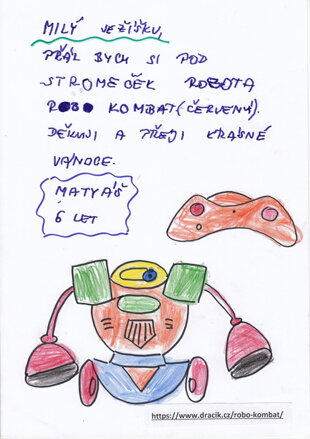 MILÝ JEŽÍŠKU,
PŘÁL BYCH SI POD
STROMEČEK ROBOTA
ROBO KOMBAT (ČERVENÝ).
DĚKUJI A PŘEJI KRÁSNÉ
VÁNOCE.
MATYÁŠ
6 LET
https://www.dracik.cz/robo-kombat/